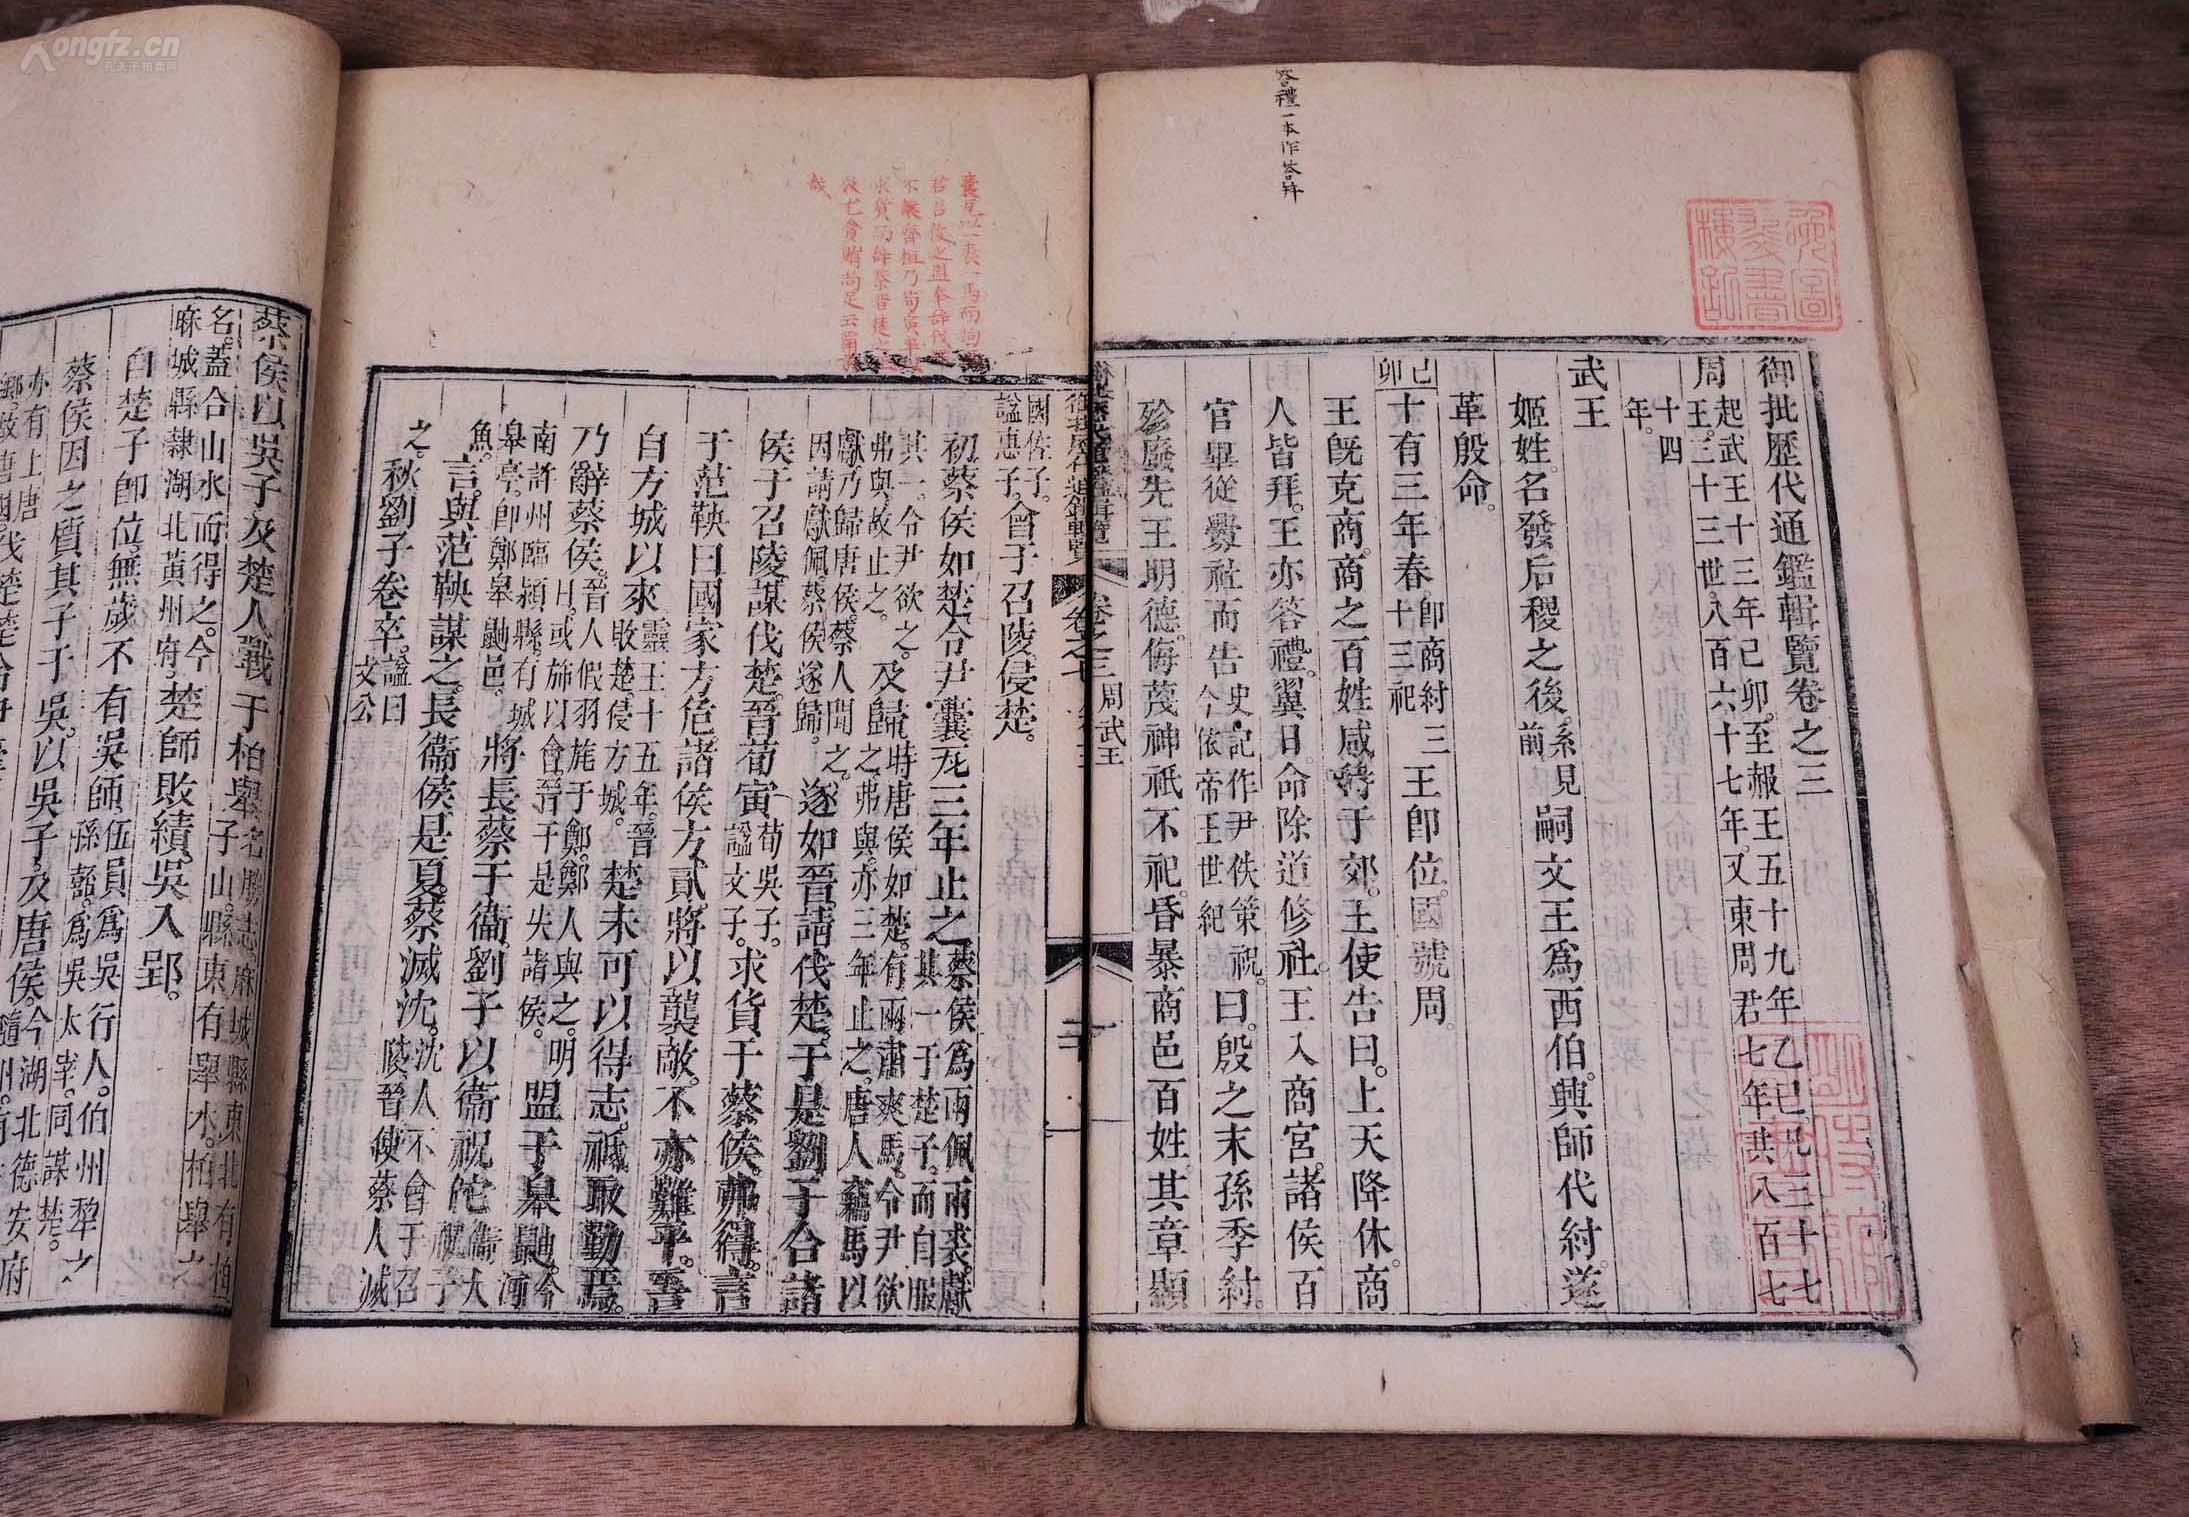 Kongfz.cn
孔夫子拍卖网
答禮一本作答拜
御批歷代通鑑輯覽卷之三
周起武王十三年己卯至赧王五十九年乙巳凡三十七
王三十三世八百六十七年又東周君七年共八百七
十四
年
武王
姬姓名發后稷之後系見前嗣文王為西伯興師伐紂遂
革殷命
己卯
十有三年春即商紂三十三祀王即位國號周
王既克商商之百姓咸待于郊王使告曰上天降休商
人皆拜王亦答禮翼日命除道修社王入商宮諸侯百
官畢從釁社而告史記作尹佚策祝今依帝王世紀祝曰殷之末孫季紂
殄廢先王明德侮蔑神祇不祀昏暴商邑百姓其章顯
卷之三
周武王
一
國佐子
諡惠子會于召陵侵楚
初蔡侯如楚令尹囊瓦三年止之蔡侯為兩佩兩裘獻
其一于楚子而自服
其一令尹欲之
弗與故止之及歸時唐侯如楚有兩肅爽馬令尹欲
之弗與亦三年止之唐人竊馬以
獻乃歸唐侯蔡人聞之
因請獻佩蔡侯遂歸遂如晉請伐楚于是劉子合諸
侯于召陵謀伐楚晉荀寅荀吳子諡文子求貨于蔡侯弗得言
于范鞅曰國家方危諸侯方貳將以襲敵不亦難乎晉
自方城以來靈王十五年晉敗楚侵方城楚未可以得志祗取勤焉
乃辭蔡侯晉人假羽旄于鄭鄭人與之明
日或斾以會晉于是失諸侯盟于皋鼬今河
南許州臨潁縣有城
皋亭即鄭皋鼬邑將長蔡于衞劉子以衞祝佗衞大祝子
魚言與范鞅謀之長衞侯是夏蔡滅沈沈人不會于召
陵晉使蔡人滅
之秋劉子卷卒諡曰
文公
蔡侯以吳子及楚人戰于柏舉
名蓋合山水而得之今
麻城縣隸湖北黃州府楚師敗績吳入郢
自楚子即位無歲不有吳師伍員為吳行人伯州犁之
孫嚭為吳太宰同謀楚
蔡侯因之質其子于吳以吳子及唐侯今湖北德安府